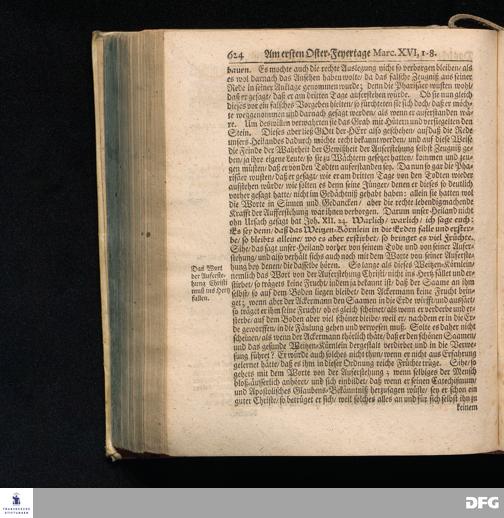 624 Am ersten Oster-Feyertage Marc. XVI, 1-8.
bauen. Es mochte auch die rechte Auslegung nicht so verborgen bleiben/ als
es wol darnach das Ansehen haben wolte/ da das falsche Zeugniß aus seiner
Rede in seiner Anklage genommen wurde; denn die Pharisäer wusten wohl/
daß er gesagt/ daß er am dritten Tage auferstehen würde. Ob sie nun gleich
dieses vor ein falsches Vorgeben hielten/ so fürchteten sie sich doch/ daß er möch-
te weggenommen und darnach gesagt werden/ als wenn er auferstanden wä-
re. Um deswillen verwahrten sie das Grab mit Hütern und versiegelten den
Stein. Dieses aber ließ GOtt der HErr also geschehen/ auf daß die Rede
unsers Heilandes dadurch möchte recht bekannt werden/ und auf diese Weise
die Feinde der Wahrheit der Gewißheit der Auferstehung selbst Zeugniß ge-
ben/ ja ihre eigene Leute/ so sie zu Wächtern gesetzet hatten/ kommen und zeu-
gen müsten/ daß er von den Todten auferstanden sey. Da nun so gar die Pha-
risäer wusten/ daß er gesagt/ wie er am dritten Tage von den Todten wieder
auferstehen würde/ wie solten es denn seine Jünger/ denen er dieses so deutlich
vorher gesagt hatte/ nicht im Gedächtniß gehabt haben: allein sie hatten wol
die Worte in Sinnen und Gedancken/ aber die rechte lebendigmachende
Krafft der Aufferstehung war ihnen verborgen. Darum unser Heiland nicht
ohn Ursach gesagt hat Joh. XII. 24. Warlich/ warlich/ ich sage euch:
Es sey denn/ daß das Weitzen-Körnlein in die Erden falle und erster-
be/ so bleibts alleine/ wo es aber erstirbet/ so bringet es viel Früchte.
Sihe/ das sagt unser Heiland vorher von seinem Tode und von seiner Aufer-
stehung/ und also verhält sichs auch noch mit dem Worte von seiner Auferste-
hung bey denen/ die dasselbe hören. So lange als dieses Weitzen-Körnlein/
Das Wort
der Auferste-
hung Christi
muß ins Hertz
fallen.
nemlich das Wort von der Auferstehung Christi/ nicht ins Hertz fället und er-
stirbet/ so trägets keine Frucht/ indem ja bekannt ist/ daß der Saame an ihm
selbst/ so auf dem Boden liegen bleibet/ dem Ackermann keine Frucht brin-
get; wenn aber der Ackermann den Saamen in die Erde wirfft/ und aussäet/
so träget er ihm seine Frucht/ ob es gleich scheinet/ als wenn er verderbe und er-
sterbe/ auf dem Boden aber viel schöner bleibe/ weil er/ nachdem er in die Er-
de geworffen/ in die Fäulung gehen und verwesen muß. Solte es daher nicht
scheinen/ als wenn der Ackermann thörlich thäte/ daß er den schönen Saamen/
und das gesunde Weitzen-Körnlein dergestalt verdirbet und in die Verwe-
sung führet? Er würde auch solches nicht thun/ wenn er nicht aus Erfahrung
gelernet hätte/ daß es ihm in dieser Ordnung reiche Früchte trüge. Sihe/ so
gehets mit dem Worte von der Auferstehung; wenn selbiges der Mensch
bloß äusserlich anhöret/ und sich einbildet/ daß wenn er seinen Catechismum/
und Apostolisches Glaubens-Bekäntniß herzusagen wüste/ sey er schon ein
guter Christe/ so betrüget er sich/ weil solches alles an und für sich selbst ihn zu
keinem
FRANCKESCHE
STIFTUNGEN
DFG